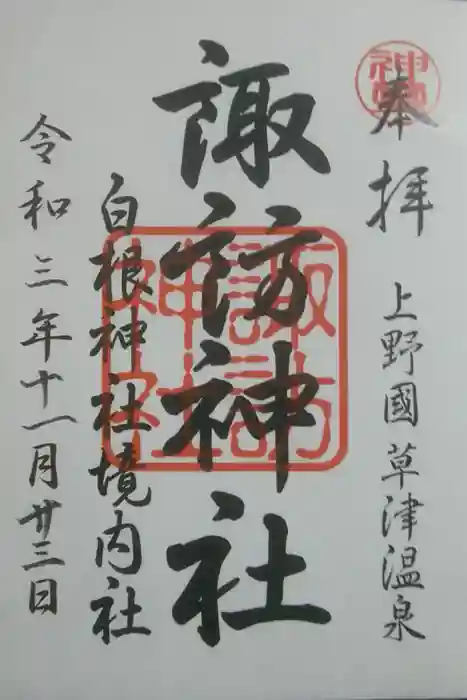 奉拝
上野國草津温泉
諏訪神社
諏訪
神社
白根神社境内社
令和三年十一月廿三日